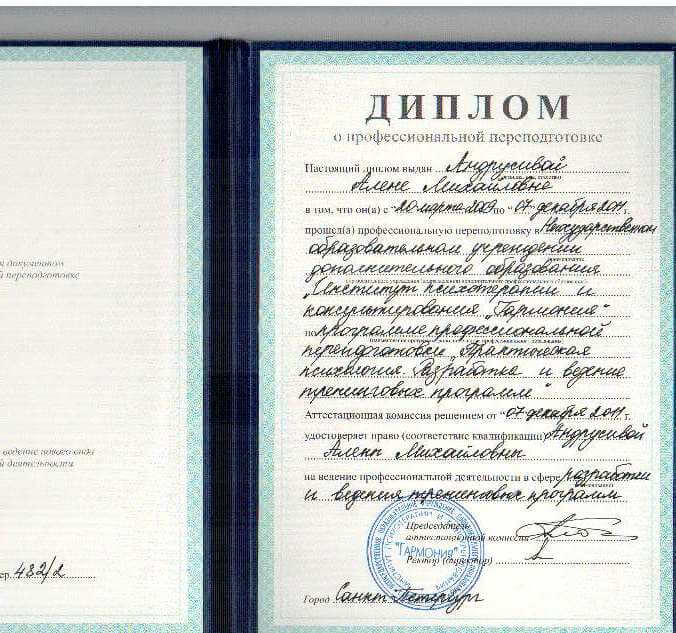 документом
й переподготовке
ведение нового вида
й деятельности
ер. 482/2
ДИПЛОМ
о профессиональной переподготовке
Настоящий диплом выдан Андрусивой
Алене Михайловне
в том, что он(а) с "20 марта 2009 по "07 декабря 2011 г.
прошел(а) профессиональную переподготовку в Негосударственном
образовательном учреждении
дополнительного образования
„Институт психотерапии и
консультирования „Гармония"
по программе профессиональной
переподготовки „Практическая
психология. Разработка и ведение
тренинговых программ"
Аттестационная комиссия решением от "07 декабря 2011 г.
удостоверяет право (соответствие квалификации) Андрусивой
Алены Михайловны
на ведение профессиональной деятельности в сфере разработки
и ведения тренинговых программ
Председатель
аттестационной комиссии
"ГАРМОНИЯ"
Ректор (директор)
Город Санкт-Петербург